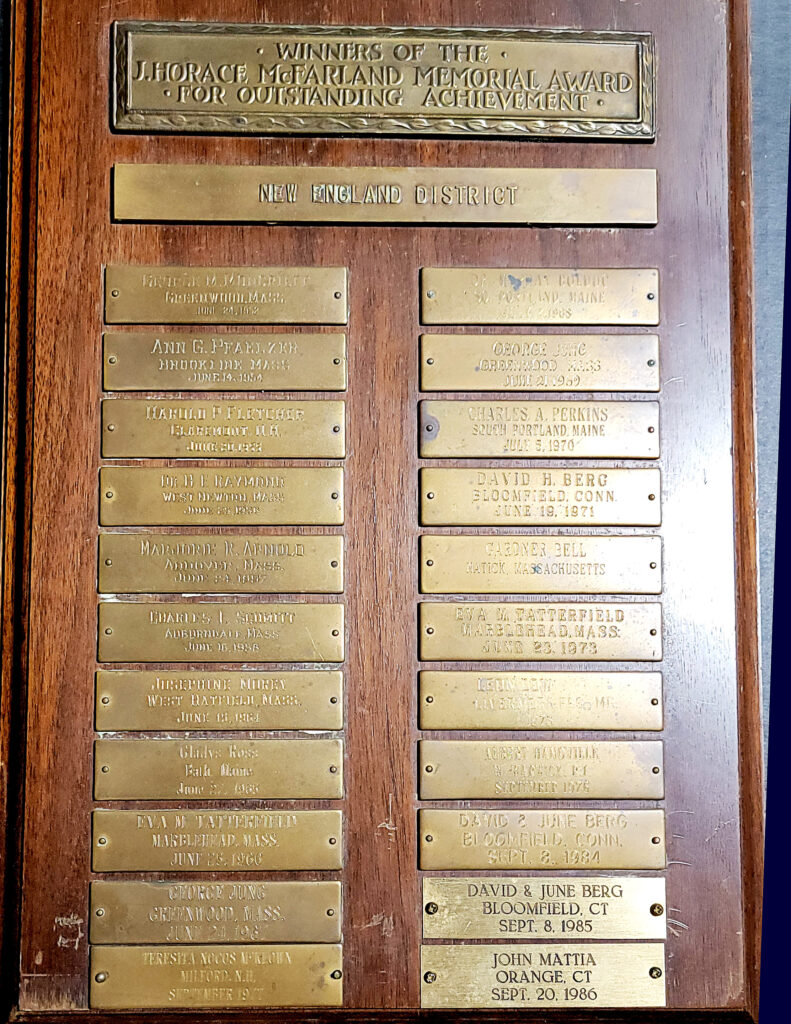 · WINNERS OF THE ·
J. HORACE McFARLAND MEMORIAL AWARD
· FOR OUTSTANDING ACHIEVEMENT ·
NEW ENGLAND DISTRICT
GREENWOOD, MASS.
JUNE 24, 1952
ANN G. PFAELZER
BROOKLINE MASS
JUNE 14, 1954
HAROLD P FLETCHER
CLAREMONT, N.H.
JUNE
DR RAYMOND
WEST NEWTON, MASS
JUNE
MARJORIE R. ARNOLD
ANDOVER, MASS.
JUNE 24, 1957
CHARLES
AUBURNDALE, MASS
JUNE 1958
JOSEPHINE MOREY
WEST HATFIELD, MASS.
JUNE 1964
Gladys Ross
Bath, Maine
June 1965
EVA M. TATTERFIELD
MARBLEHEAD, MASS.
JUNE 1966
GEORGE JUNG
GREENWOOD, MASS.
JUNE
TERESITA
MILFORD, N.H.
SEPTEMBER
SO. PORTLAND, MAINE
GEORGE JUNG
GREENWOOD MASS
JUNE 21, 1969
CHARLES A. PERKINS
SOUTH PORTLAND, MAINE
JULY 5, 1970
DAVID H. BERG
BLOOMFIELD, CONN.
JUNE 19, 1971
GARDNER BELL
NATICK, MASSACHUSETTS
EVA M. TATTERFIELD
MARBLEHEAD, MASS.
JUNE 23, 1973
ALBERT
SEPTEMBER
DAVID & JUNE BERG
BLOOMFIELD, CONN.
SEPT. 8, 1984
DAVID & JUNE BERG
BLOOMFIELD, CT
SEPT. 8, 1985
JOHN MATTIA
ORANGE, CT
SEPT. 20, 1986